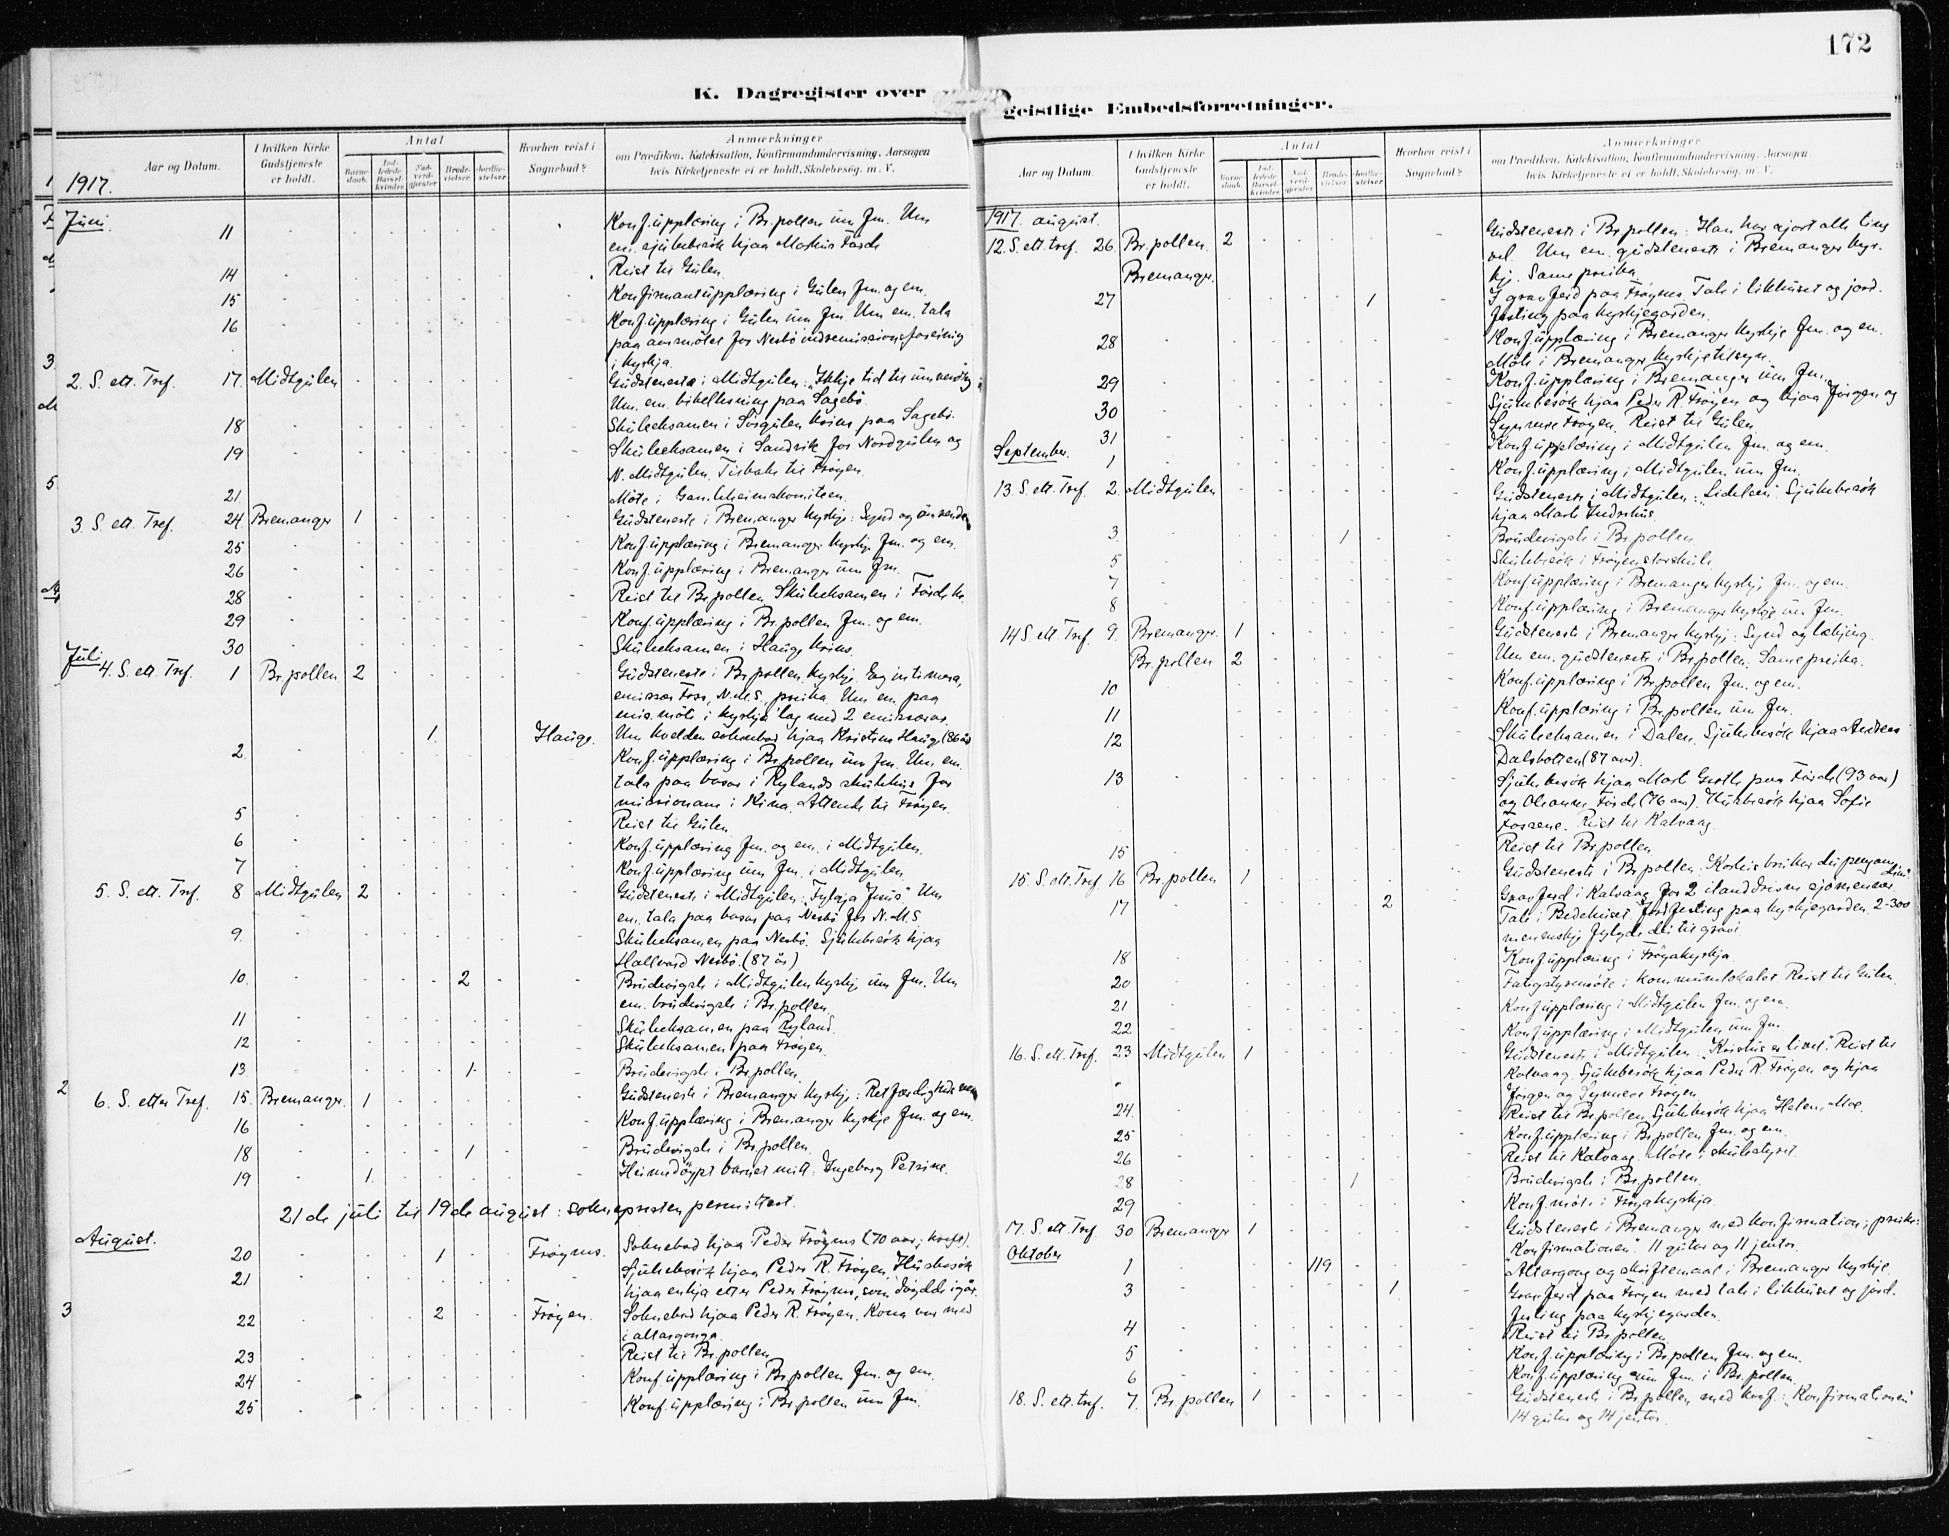 172
K. Dagregister over
geistlige Embedsforretninger.
Aar og Datum.
I hvilken Kirke Gudstjeneste er holdt.
Antal
Barnedaab.
Indledede Barselkvinder.
Nadverdgjester
Brudevielser.
Jordfæstelser
Hvorhen reist i Sognebud?
Anmærkninger
om Prædiken, Katekisation, Konfirmandundervisning, Aarsagen
hvis Kirketjeneste ei er holdt, Skolebesøg, m. V.
1917.
Juni. 11 Konf.upplæring i Br.pollen um fm. Um
em. sjukebesök hjaa Förde
14 Reist til Gulen.
15 Konfirmantupplæring i Gulen fm. og em.
16 Konf.upplæring i Gulen um fm. Um em. tala
paa aarsmötet for Nesbö indremissionsforeining
i kyrkja.
2. S. ett. Tref. 17. Midtgulen Gudsteneste i Midtgulen: Ikkje tid til umvending
Um. em. bibellesning paa Sagebö.
18 Skuleeksamen i Sörgulen krins paa Sagebö.
19 Skuleeksamen i Sandvik for Nordgulen og
N. Midtgulen. Tilbake til Fröyen.
21 Möte i Gamleheimskomiteen.
3 S. ett. Tref. 24 Bremanger 1 Gudsteneste i Bremanger kyrkje: Synd og
25 Konf.upplæring i Bremanger kyrkje fm. og em.
26 Konf.upplæring i Bremanger um fm.
28 Reist til Br.pollen. Skuleeksamen i Förde kr.
29 Konf.upplæring i Br.pollen fm. og em.
30 Skuleeksamen i Hauge krins.
Juli
4. S. ett. Tref. 1 Br.pollen 2 Gudsteneste i Br.pollen kyrkje. Eg intimera,
emissær Foss, N.M.S. preika. Um em. paa
mis.möte i kyrkja lag med 2 emissærar.
1. Hauge. Um kvelden soknebod hjaa Kristine Hauge (86 år)
2 Konf.upplæring i Br.pollen um fm. Um em.
tala paa basar i Rylands skulehus for
misionane i Kina. Attende til Fröyen.
5 Reist til Gulen.
6 Konf.upplæring fm. og em. i Midtgulen.
7 Konf.upplæring um fm. i Midtgulen.
5. S. ett. Tref. 8 Midtgulen 2 Gudsteneste i Midtgulen: "Fylgja Jesus" Um
em. tala paa basar paa Nesbö for N.M.S
9. Skuleeksamen paa Nesbö. Sjukebesök hjaa
Hallvard Nesbö. (87 år)
10. 2 Brudevigsle i Midtgulen kyrkje um fm. Um
em. brudevigsle i Br.pollen.
11 Skuleeksamen paa Ryland.
12 Skuleeksamen paa Fröyen.
13 1 Brudevigsle i Br.pollen
6. S. etter Tref. 15. Bremanger. 1 Gudsteneste i Bremanger kyrkje:
16 Konf.upplæring i Bremanger kyrkje fm. og em.
18 1 Brudevigsle i Br.pollen.
19 1. Heimedöypt barnet mitt: Ingeborg Petrine.
21de juli til 19de august: soknepresten permittert.
August.
20 1 Fröyens. Soknebod hjaa Peder Fröyens (70 aar; kreft).
21 Sjukebesök hjaa Peder R. Fröyen. Husbesök
hjaa enkja etter Peder Fröyens, som döydde igår.
22 2 Fröyen. Soknebod hjaa Peder R. Fröyen. Kona var med
i altargonga.
23 Reist til Br.pollen
24 Konf.upplæring i Br.pollen fm. og em.
25 Konf.upplæring i Br.pollen um fm.
Aar og Datum.
I hvilken Kirke Gudstjeneste er holdt.
Antal
Barnedaab.
Indledede Barselkvinder.
Nadverdgjester
Brudevielser.
Jordfæstelser
Hvorhen reist i Sognebud?
Anmærkninger
om Prædiken, Katekisation, Konfirmandundervisning, Aarsagen
hvis Kirketjeneste ei er holdt, Skolebesøg, m. V.
1917. august.
12. S. ett. tref. 26. Br.pollen. 2 Gudsteneste i Br.pollen: Han har gjort alle ting
vel. Um em. gudsteneste i Bremanger kyr-
Bremanger. kje. Same preika.
27 1 I gravferd paa Fröyens. Tale i likhuset og jord-
festing paa kyrkjegarden.
28 Konf.upplæring i Bremanger kyrkje fm. og em.
Möte i Bremanger kyrkjetilsyn.
29 Konf.upplæring i Bremanger um fm.
30 Sjukebesök hjaa Peder R. Fröyen og hjaa Jörgen og
Synneve Fröyen. Reist til Gulen.
31 Konf.upplæring i Midtgulen fm. og em.
September.
1 Konf.upplæring i Midtgulen um fm.
13. S. ett. Tref. 2. Midtgulen Gudsteneste i Midtgulen: Lidelsen. Sjukebesök
hjaa Marte Indrehus.
3 1 Brudevigsle i Br.pollen.
5 Skulebesök i Fröyen storskule.
7 Konf.upplæring i Bremanger kyrkje fm. og em.
8 Konf.upplæring i Bremanger kyrkje um fm.
14 S. ett. Tref. 9. Bremanger. 1 Gudsteneste i Bremanger kyrkje: Synd og lækjing.
Br.pollen 2 Um em. gudsteneste i Br.pollen. Same preika.
10 Konf.upplæring i Br.pollen fm. og em.
11 Konf.upplæring i Br.pollen um fm.
12 Skuleeksamen i Dalen. Sjukebesök hjaa Andreas
Dalsbotten (87 aar).
13 Sjukebesök hjaa Marte Grotle paa Förde (93 aar)
og Olianna Förde (76 aar). Husbesök hjaa Sofie
Fossene. Reist til Kalvaag.
15 Reist til Br.pollen
15. S. ett. Tref. 16 Br.pollen 1 Gudsteneste i Br.pollen: Korleis bruker du pengane dine?
17 2 Gravferd i Kalvaag for 2 ilanddrivne sjömenner.
Tale i Bedehuset. Jordfesting paa kyrkjegarden. 2-300
menneskje fylgde dei til gravi
18 Konf.upplæring i Fröyakyrkja.
20 Fatigstyremöte i kommunelokalet. Reist til Gulen.
21 Konf.upplæring i Midtgulen fm. og em.
22 Konf.upplæring i Midtgulen um fm
16. S. ett. Tref. 23 Midtgulen 1 Gudsteneste i Midtgulen: "Kristus er livet". Reist til
Kalvaag. Sjukebesök hjaa Peder R Fröyen og hjaa
Jörgen og Synneve Fröyen.
24. Reist til Br.pollen. Sjukebesök hjaa Helene Moe.
25 Konf.upplæring i Br.pollen fm. og em.
26 Reist til Kalvaag. Möte i skulestyret.
28 1 Brudevigsle i Br.pollen.
29 Konf.möte i Fröyakyrkja.
17. S. ett. Tref. 30 Bremanger 1 Gudsteneste i Bremanger med konfirmation; preike:
"Konfirmationen". 11 guter og 11 jentor.
Oktober
1 119 Altargong og skriftemaal i Bremanger kyrkje.
3 1 Gravferd paa Fröyen med tale i likhuset og jord-
festing paa kyrkjegarden.
4 Reist til Br.pollen.
5 Konf.upplæring i Br.pollen fm. og em.
6 Konf.upplæring um fm. i Br.pollen.
18. S. ett. tref. 7. Br.pollen 1 Gudsteneste i Br.pollen med konf.: "Konfirmationen"
14 guter og 14 jentor.